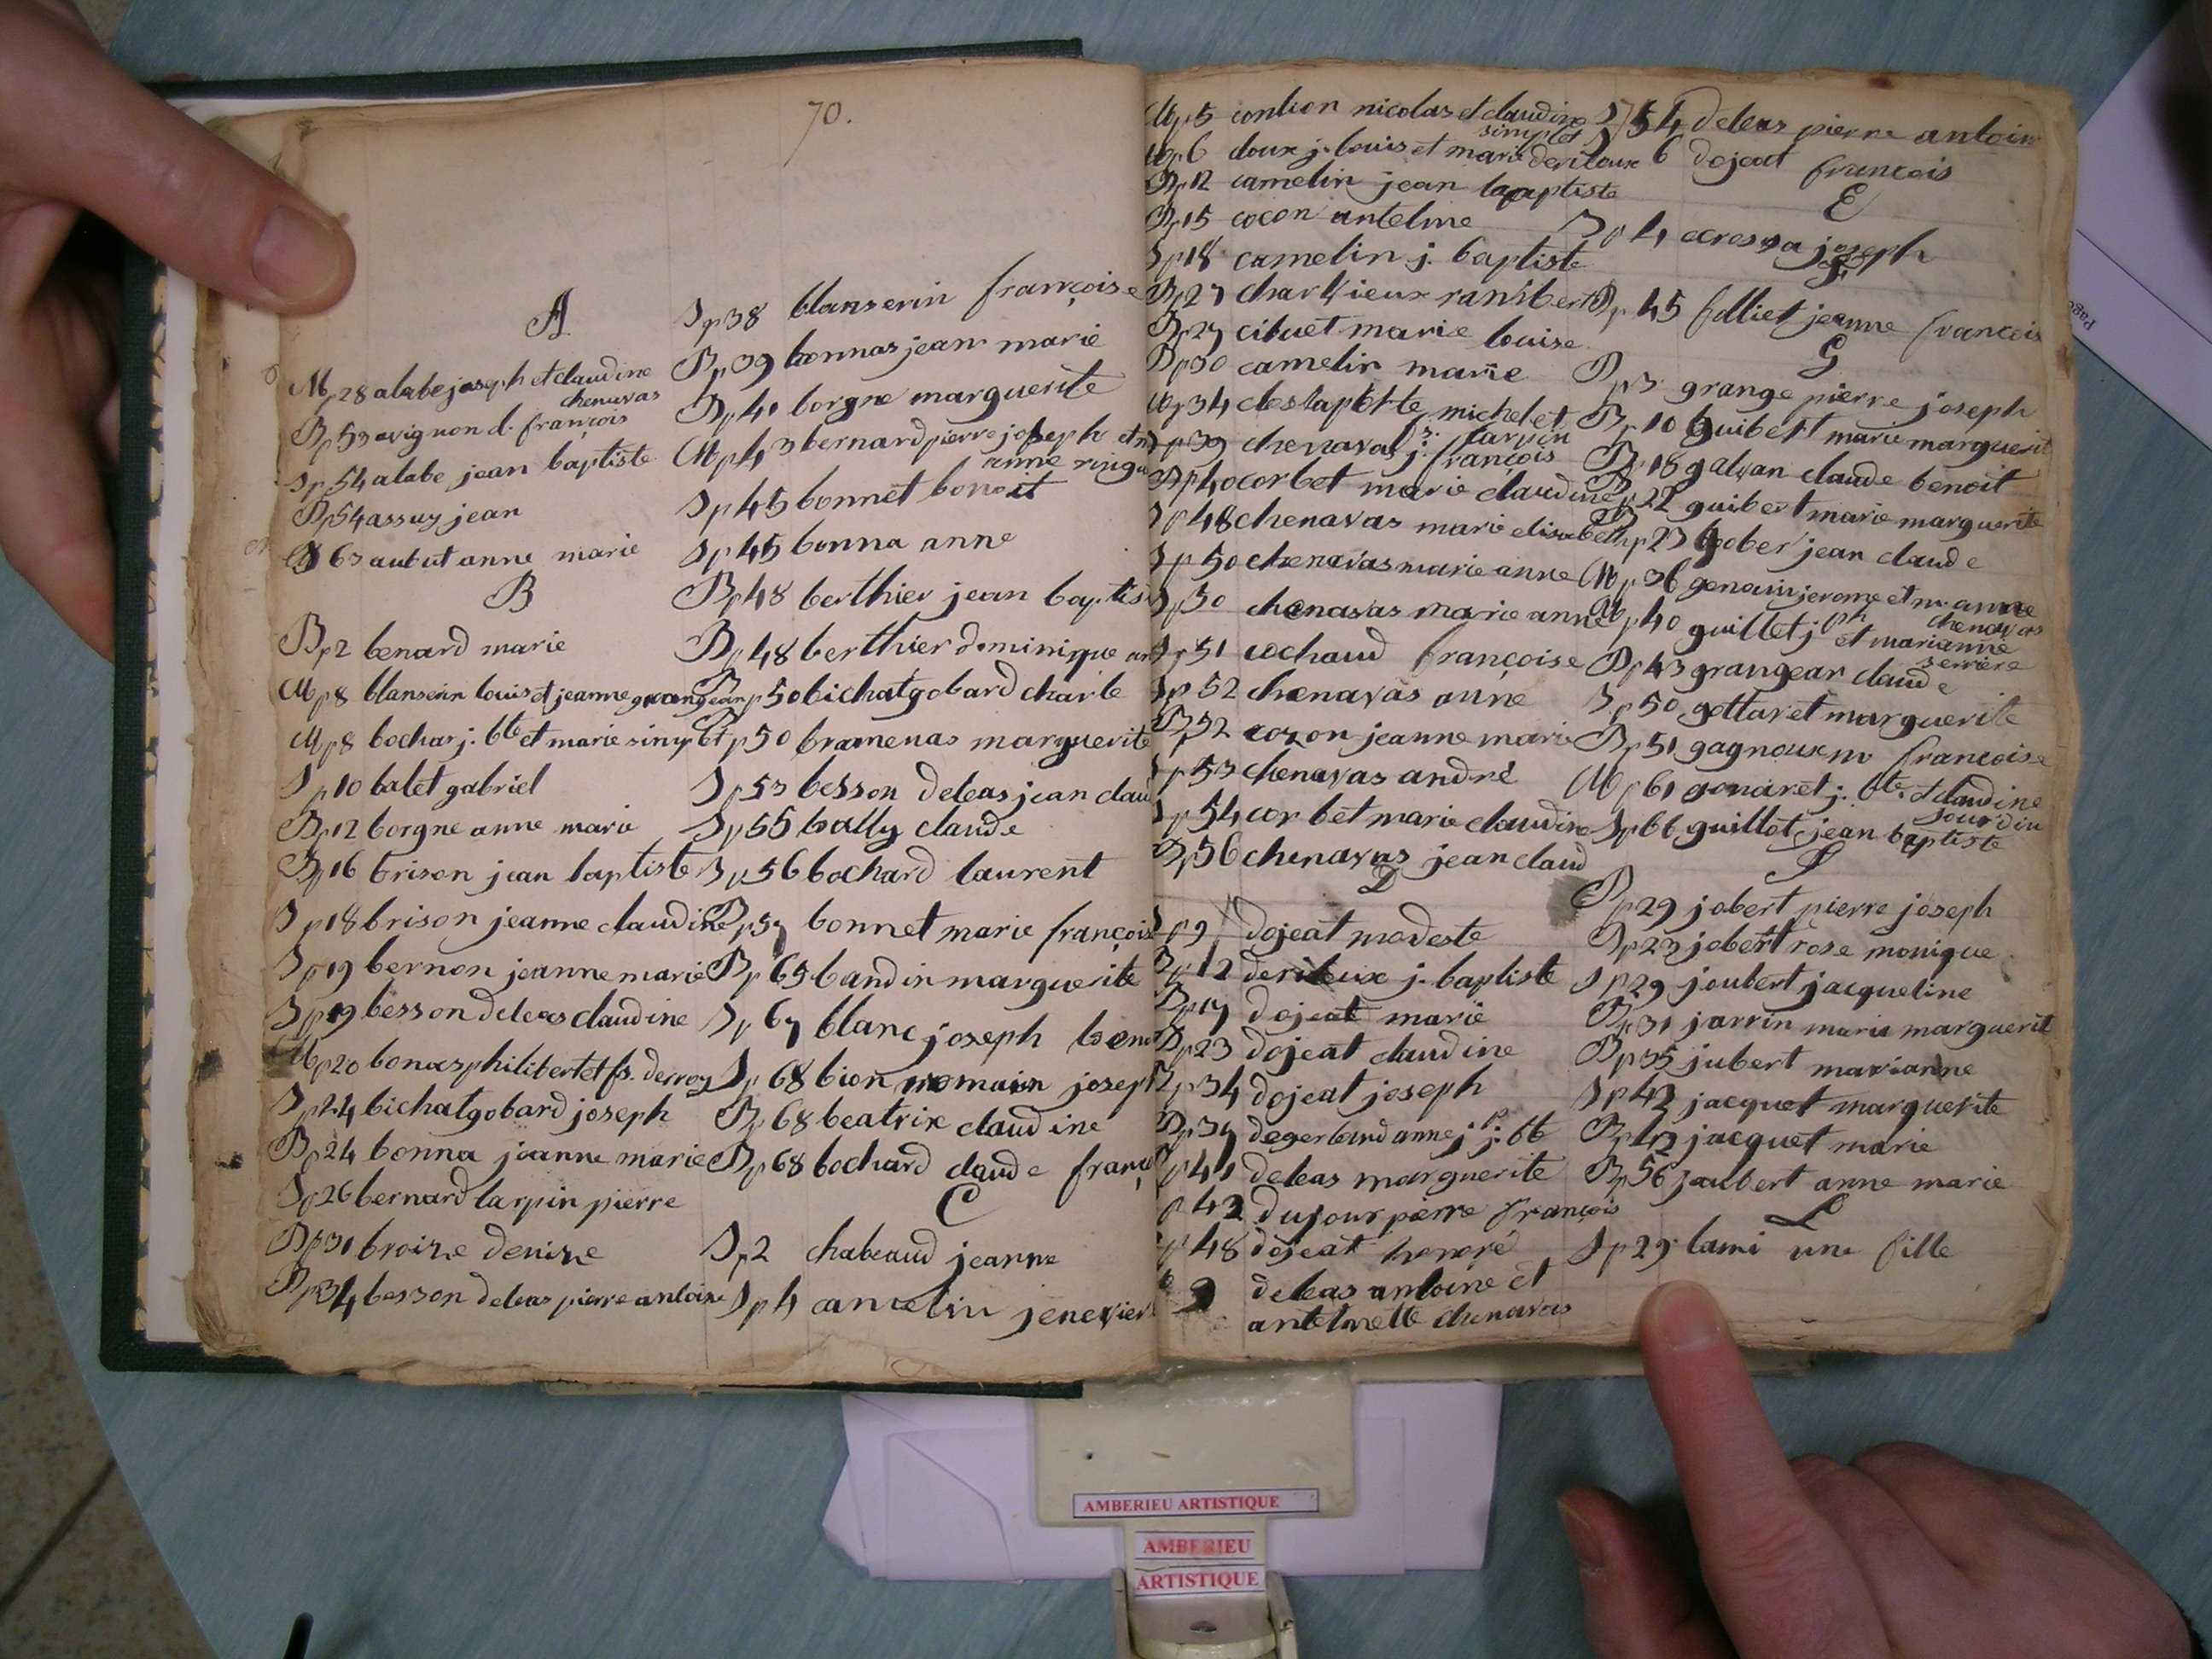 70.
A
Mp28 alabe joseph et claudine
chenavas
Bp53 avignon d. françois
Sp54 alabe jean baptiste
Bp54 assuy jean
63 aubut anne marie
B
Bp2 benard marie
Mp8 blanserin louis et jeanne grangean
Mp8 bochar j. bte et marie sinplet
Sp10 balet gabriel
Bp12 borgne anne marie
Bp16 brison jean baptiste
Sp18 brison jeanne claudine
Sp19 bernon jeanne marie
Sp19 besson deleas claudine
Mp20 bonas philibert et fs. derroy
Sp24 bichatgobard joseph
Bp24 bonna jeanne marie
Sp26 bernard larpin pierre
Bp31 broize denize
Bp34 besson deleas pierre antoine
Sp38 blanserin françoise
Bp39 bonnas jean marie
Bp41 borgne marguerite
Mp43 bernard pierre joseph et m
anne ringu
Sp45 bonnet benoit
Sp45 bonna anne
Bp48 berthier jean baptis
Bp48 berthier dominique an
Bp50 bichatgobard charle
Bp50 bramenas marguerite
Sp53 besson deleas jean clau
Sp55 bally claude
Bp56 bochard laurent
Bp57 bonnet marie françois
Bp65 bandin marguerite
Sp67 blanc joseph beno
Sp68 bion romain joseph
Bp68 beatrix claudine
Bp68 bochard claude franç
C
Sp2 chabeaud jeanne
Sp4 camelin jenevieve
Mp5 conlion nicolas et claudine
sinplet
Mp6 doux j. louis et marie deriloux
Bp12 camelin jean baptiste
Bp15 cocon anteline
Sp18 camelin j. baptiste
Bp27 charlieux ranibert
Bp27 cibuet marie louise
Bp30 camelin marie
Mp34 michel et
larpin
Sp39 chenaval j. françois
Bp40 corbet marie claudine
Sp48 chenavas marie elisabeth
Sp50 chenavas marie anne
Sp50 chenavas marie anne
Sp51 cochaud françoise
Sp52 chenavas anne
Bp52 cozon jeanne marie
Sp53 chenavas andré
Sp54 corbet marie claudine
Bp56 chenavas jean claud
D
p9 dojeat modeste
Bp12 derileux j. baptiste
Bp17 dojeat marie
Bp23 dojeat claudine
Bp34 dojeat joseph
Bp37 degerland anne j. j. bt
p41 deleas marguerite
p42 dujour pierre françois
p48 dojeat honoré
deleas antoine et
antelmette chenavas
Sp54 deleas pierre antoin
6 dojeat françois
E
Bp4 joseph
F
Bp45 folliet jeanne françois
G
Bp3 grange pierre joseph
Bp10 guibert marie marguerit
Bp18 galvan claude benoit
Bp22 guibert marie marguerite
Bp23 gober jean claude
Mp36 genain jerome et m. anne
chenavas
Mp40 guillet jph et marianne
serriere
Bp43 grangean claude
Sp50 gottaret marguerite
Bp51 gagnoux m françoise
Mp61 gonaret j. bte. et claudine
jourdin
Sp66 guillot jean baptiste
J
Bp29 jobert pierre joseph
Bp23 jobert rose monique
Sp29 joubert jacqueline
Bp31 jarrin marie marguerit
Bp35 jubert marianne
Sp42 jacquet marguerite
Bp42 jacquet marie
Bp56 jaubert anne marie
L
Sp29 lami une fille
Page
AMBERIEU ARTISTIQUE
AMBERIEU
ARTISTIQUE